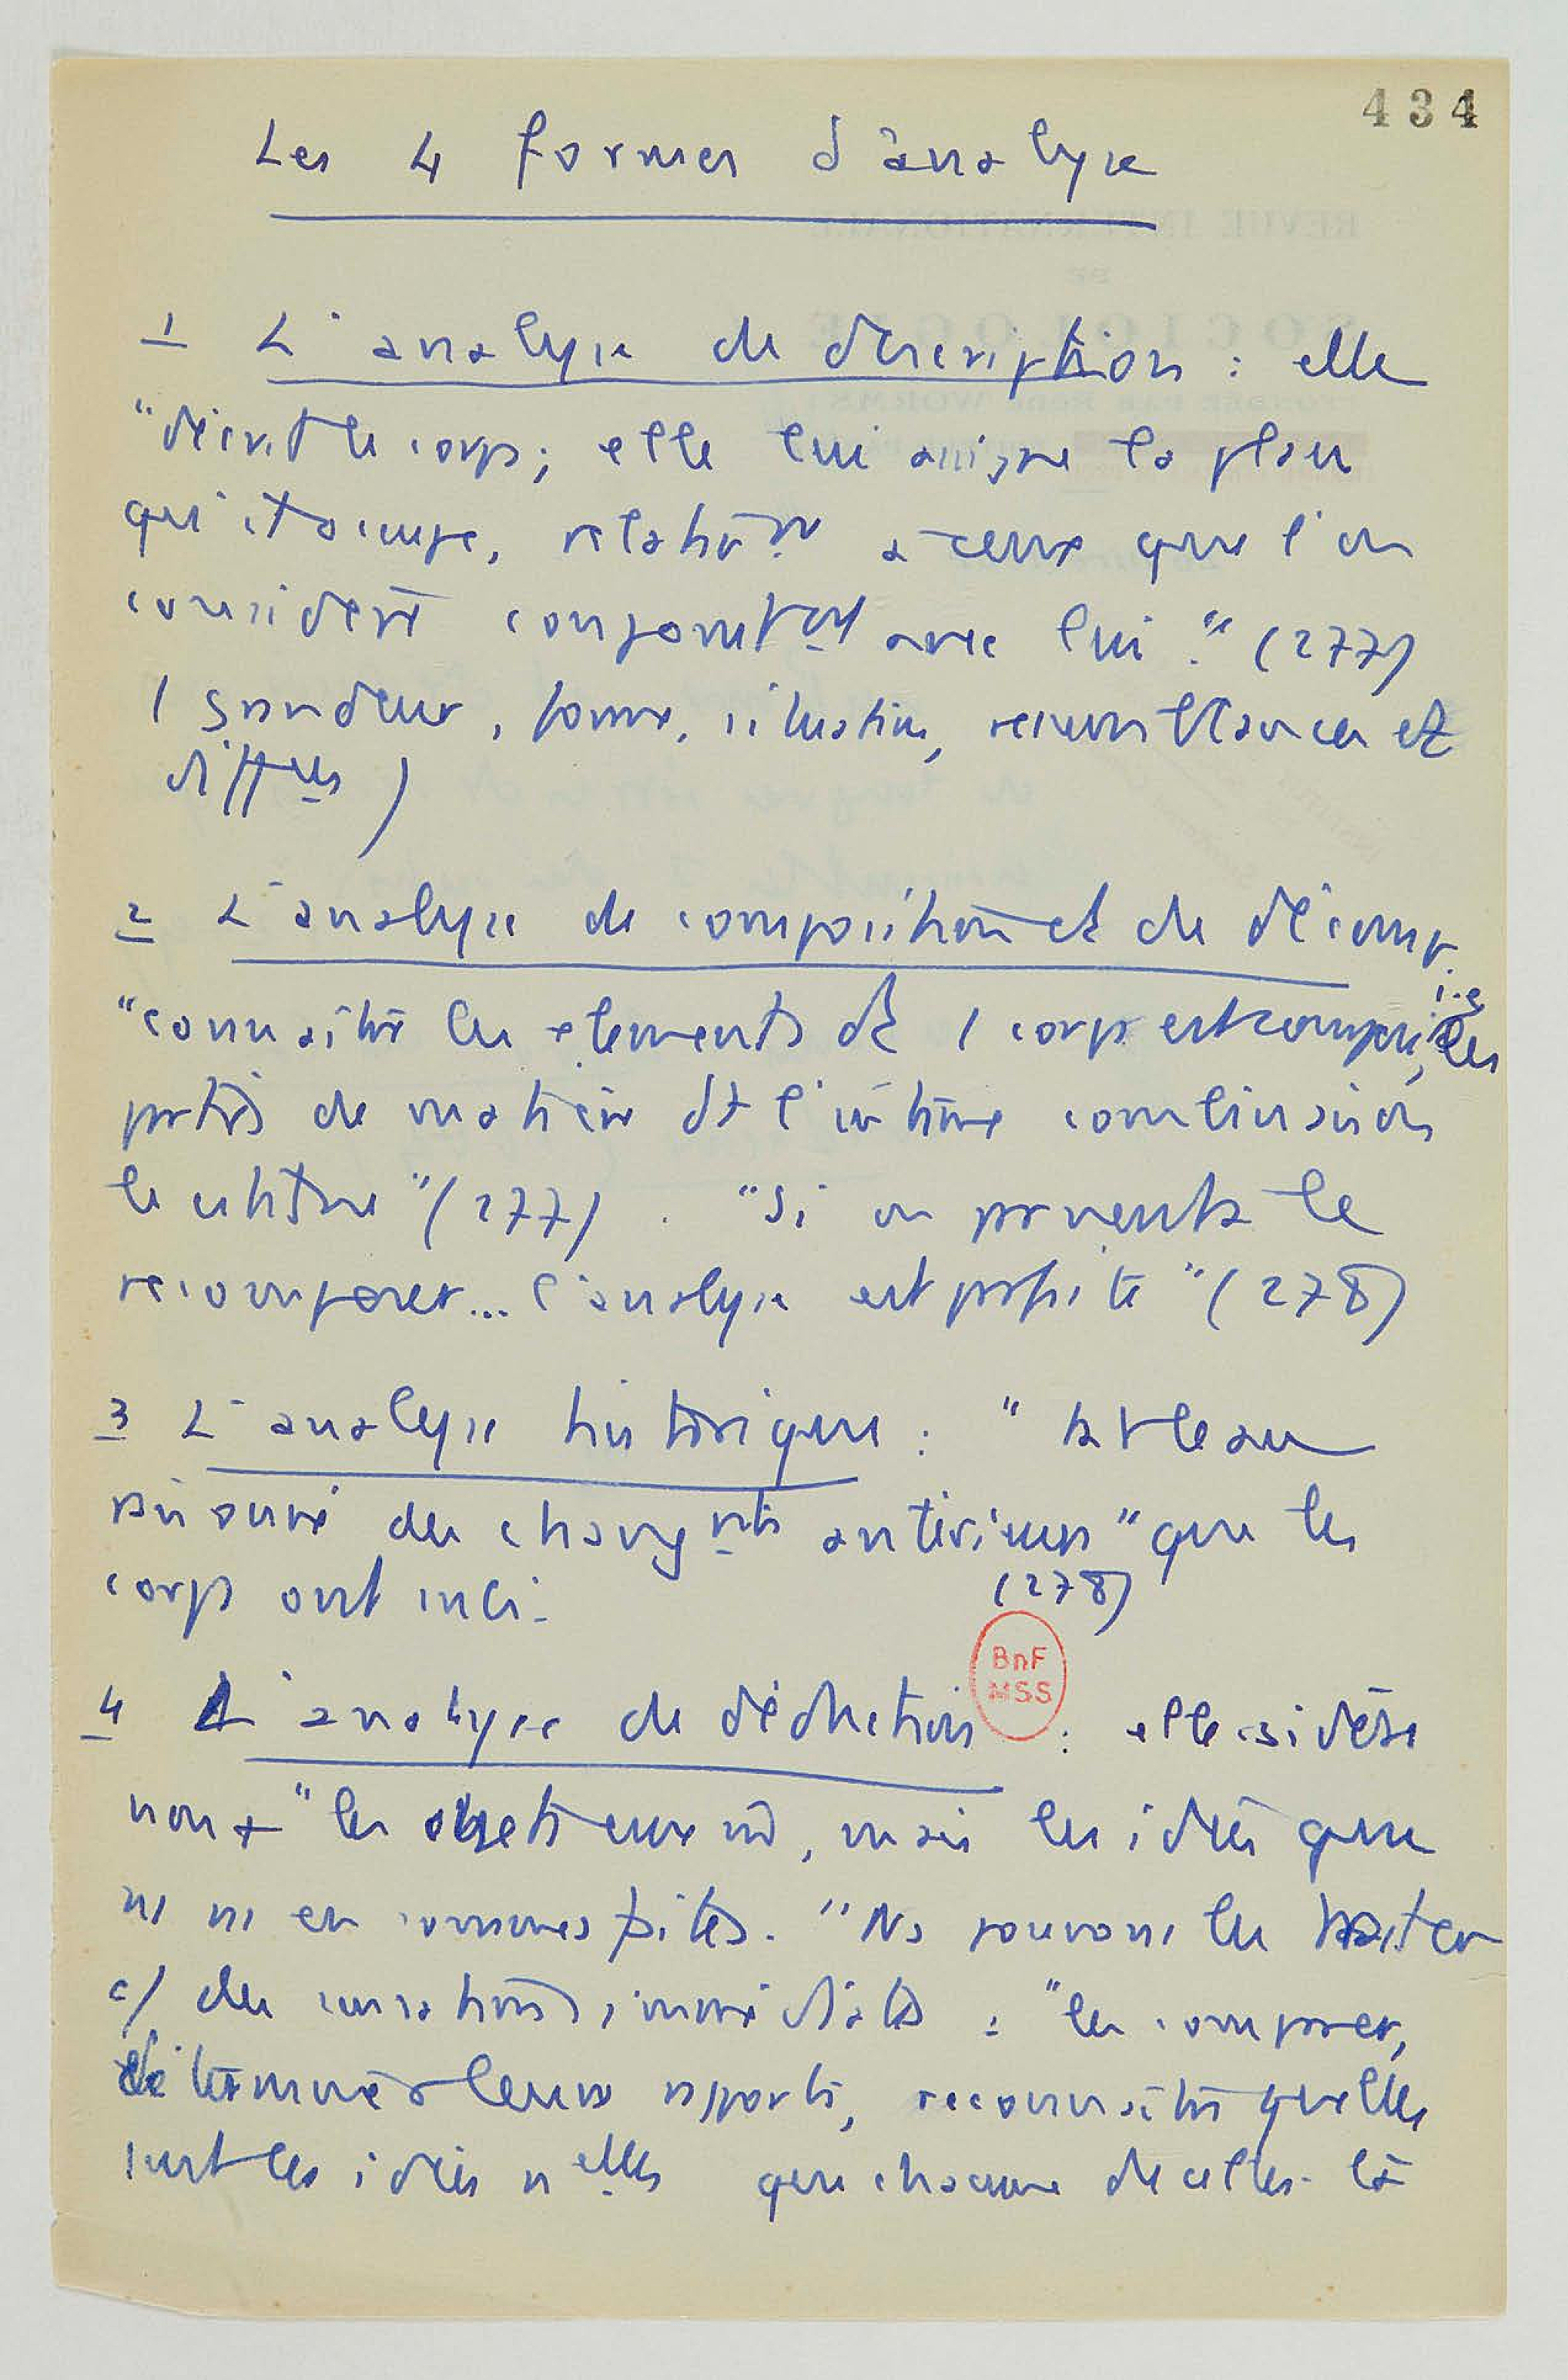 434
Les 4 formes d'analyse
1 L'analyse de description : elle
"décrit le corps ; elle lui assigne la place
qu'il occupe, relativt à ceux que l'on
considère conjointet avec lui." (277)
( grandeur, forme, situation, ressemblances et
diffces )
2 L'analyse de composition et de décomp.
"connaître les éléments dt 1 corps est composé, i.e les
parties de matière dt l'intime combinaison
le constitue" (277). "Si on parvient à le
recomposer... l'analyse est parfaite" (278)
3 L'analyse historique : " tableau
raisonné des changmts antérieurs" que les
corps ont subi. (278)
BnF
MSS
4 L'analyse de déduction : elle csidère
non + "les objets eux m̂, mais les idées que
ns ns en sommes faites." Ns pouvons les traiter
c/ des sensations immédiates : "les comparer,
déterminer leurs rapports, reconnaître quelles
sont les idées nelles que chacune de celles-là